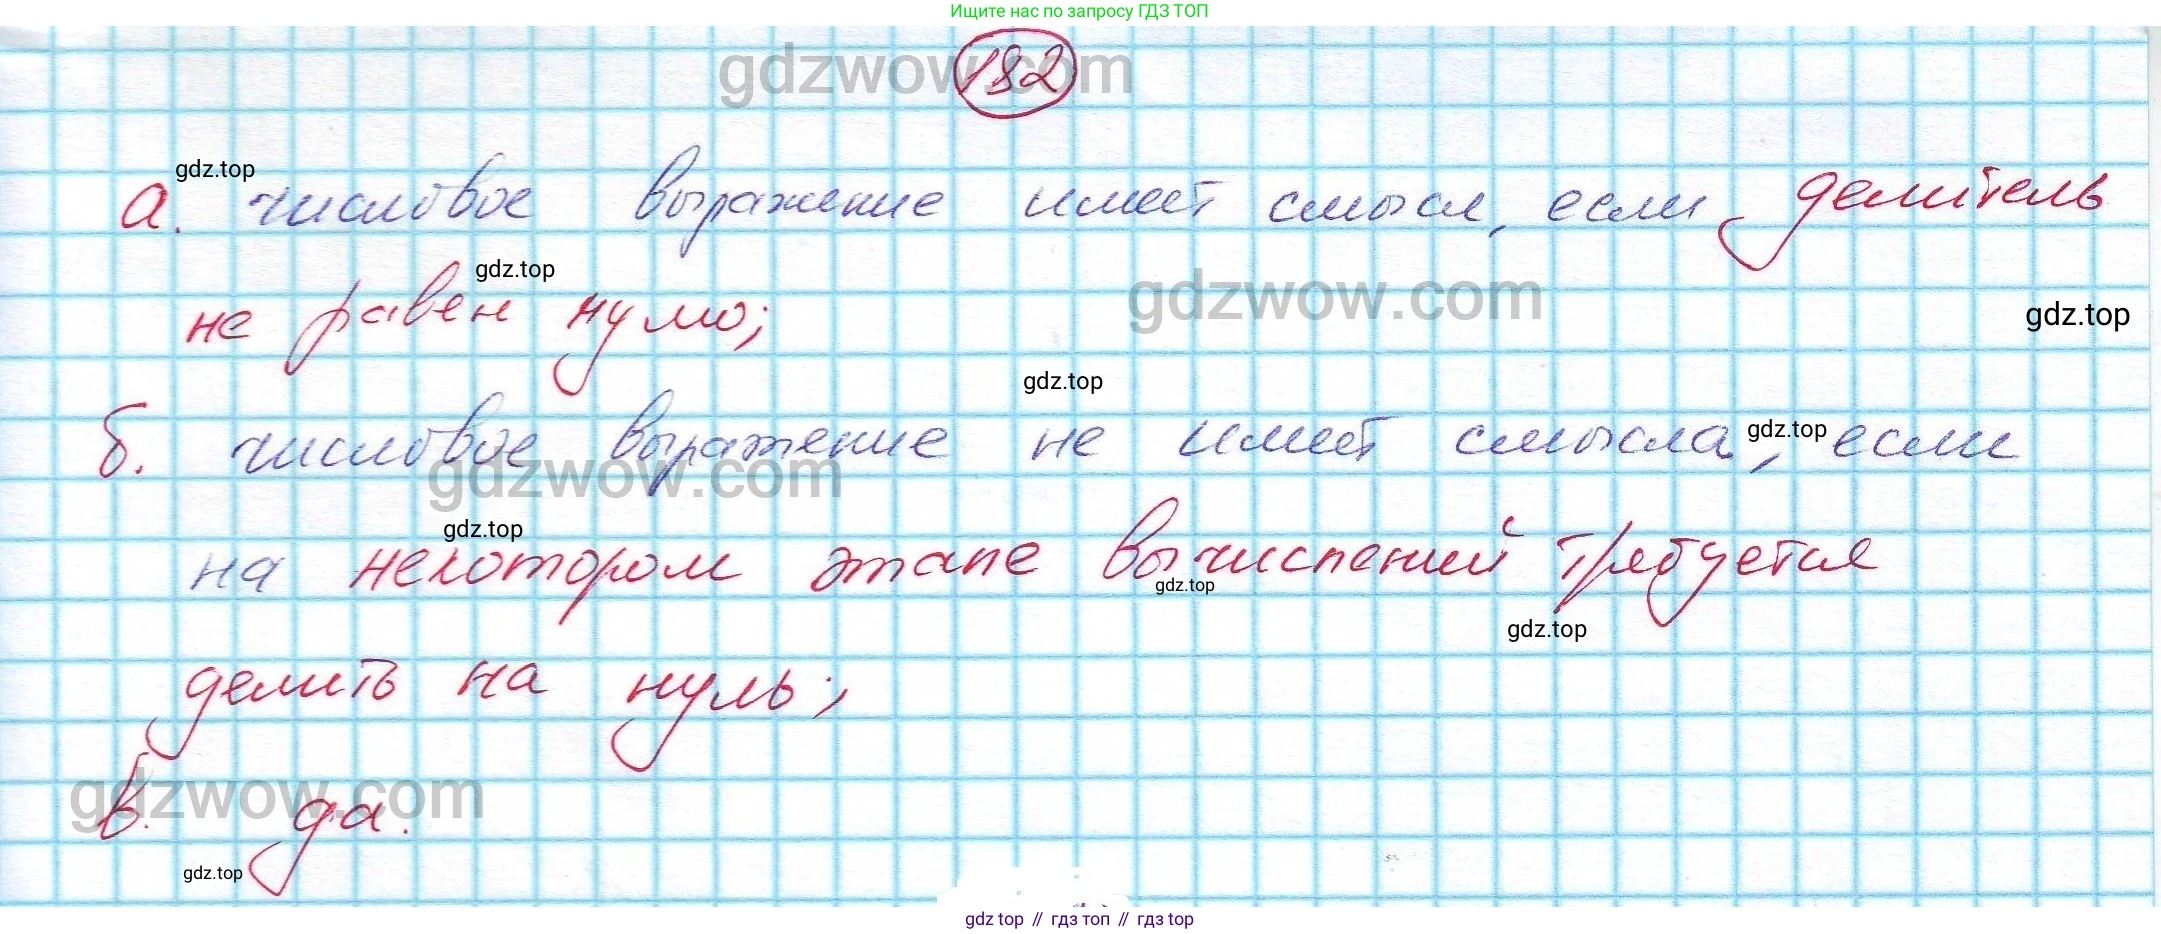 Ищите нас по запросу ГДЗ ТОП
gdzwow.com
182
gdz.top
а. числовое выражение имеет смысл, если делитель
gdz.top
не равен нулю;
gdzwow.com
gdz.top
gdz.top
б. числовое выражение не имеет смысла, если
gdz.top
gdzwow.com
gdz.top
на некотором этапе вычислений требуется
gdz.top
gdz.top
делить на нуль;
gdzwow.com
в. да.
gdz.top
gdz top // гдз топ // гдз top